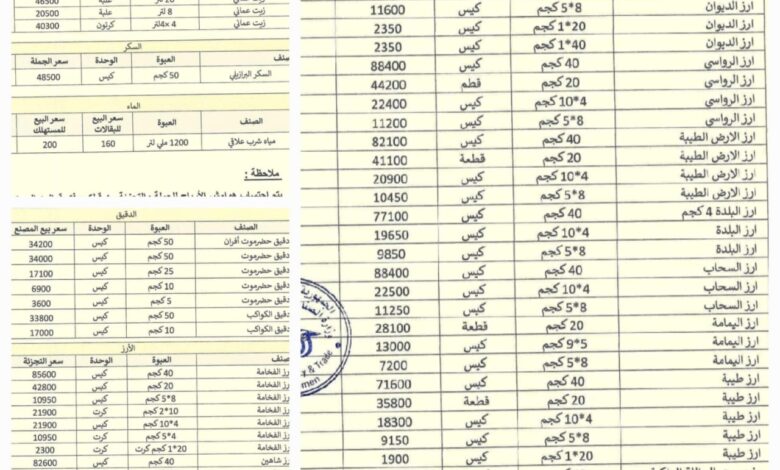 زيت عماني 20 لتر علبة 46500
زيت عماني 8 لتر علبة 20500
زيت عماني 4× 4لتر كرتون 40300
السكر
صنف العبوة الوحدة سعر الجملة
السكر البرازيلي 50 كجم كيس 48500
الماء
الصنف العبوة سعر البيع للبقالات سعر البيع للمستهلك
مياه شرب علاقي 1200 ملي لتر 160 200
ملاحظة :
الدقيق
الصنف العبوة الوحدة سعر بيع المصنع
دقيق حضرموت أفران 50 كجم كيس 34200
دقيق حضرموت 50 كجم كيس 34000
دقيق حضرموت 25 كجم كيس 17100
دقيق حضرموت 10 كجم كيس 6900
دقيق حضرموت 5 كجم كيس 3600
دقيق الكواكب 50 كجم كيس 33800
دقيق الكواكب 10 كجم كيس 17000
الأرز
صنف العبوة الوحدة سعر التجزئة
رز الفخامة 40 كجم كيس 85600
رز الفخامة 20 كجم كيس 42800
رز الفخامة 8*5 كجم كيس 10950
رز الفخامة 10*2 كجم كرت 21900
رز الفخامة 4*10 كجم كيس 21900
رز الفخامة 4*5 كجم كرت 10950
رز الفخامة 20*1 كجم كرت 2300
رز شاهين 40 كجم كيس 82600
ارز الديوان 8*5 كجم كيس 11600
ارز الديوان 20*1 كجم كيس 2350
ارز الديوان 40*1 كجم كيس 2350
ارز الرواسي 40 كجم كيس 88400
ارز الرواسي 20 كجم قطم 44200
ارز الرواسي 4*10 كجم كيس 22400
ارز الرواسي 8*5 كجم كيس 11200
ارز الارض الطيبة 40 كجم كيس 82100
ارز الارض الطيبة 20 كجم قطعة 41100
ارز الارض الطيبة 4*10 كجم كيس 20900
ارز الارض الطيبة 8*5 كجم كيس 10450
ارز البلدة 4 كجم 40 كجم كيس 77100
ارز البلدة 4*10 كجم كيس 19650
ارز البلدة 8*5 كجم كيس 9850
ارز السحاب 40 كجم كيس 88400
ارز السحاب 4*10 كجم كيس 22500
ارز السحاب 8*5 كجم كيس 11250
ارز اليمامة 20 كجم قطعة 28100
ارز اليمامة 9*5 كجم كيس 13000
ارز اليمامة 8*5 كجم كيس 7200
ارز طيبة 40 كجم كيس 71600
ارز طيبة 20 كجم قطعة 35800
ارز طيبة 4*10 كجم كيس 18300
ارز طيبة 8*5 كجم كيس 9150
ارز طيبة 20*1 كجم كيس 1900
الجمهورية
& Trade